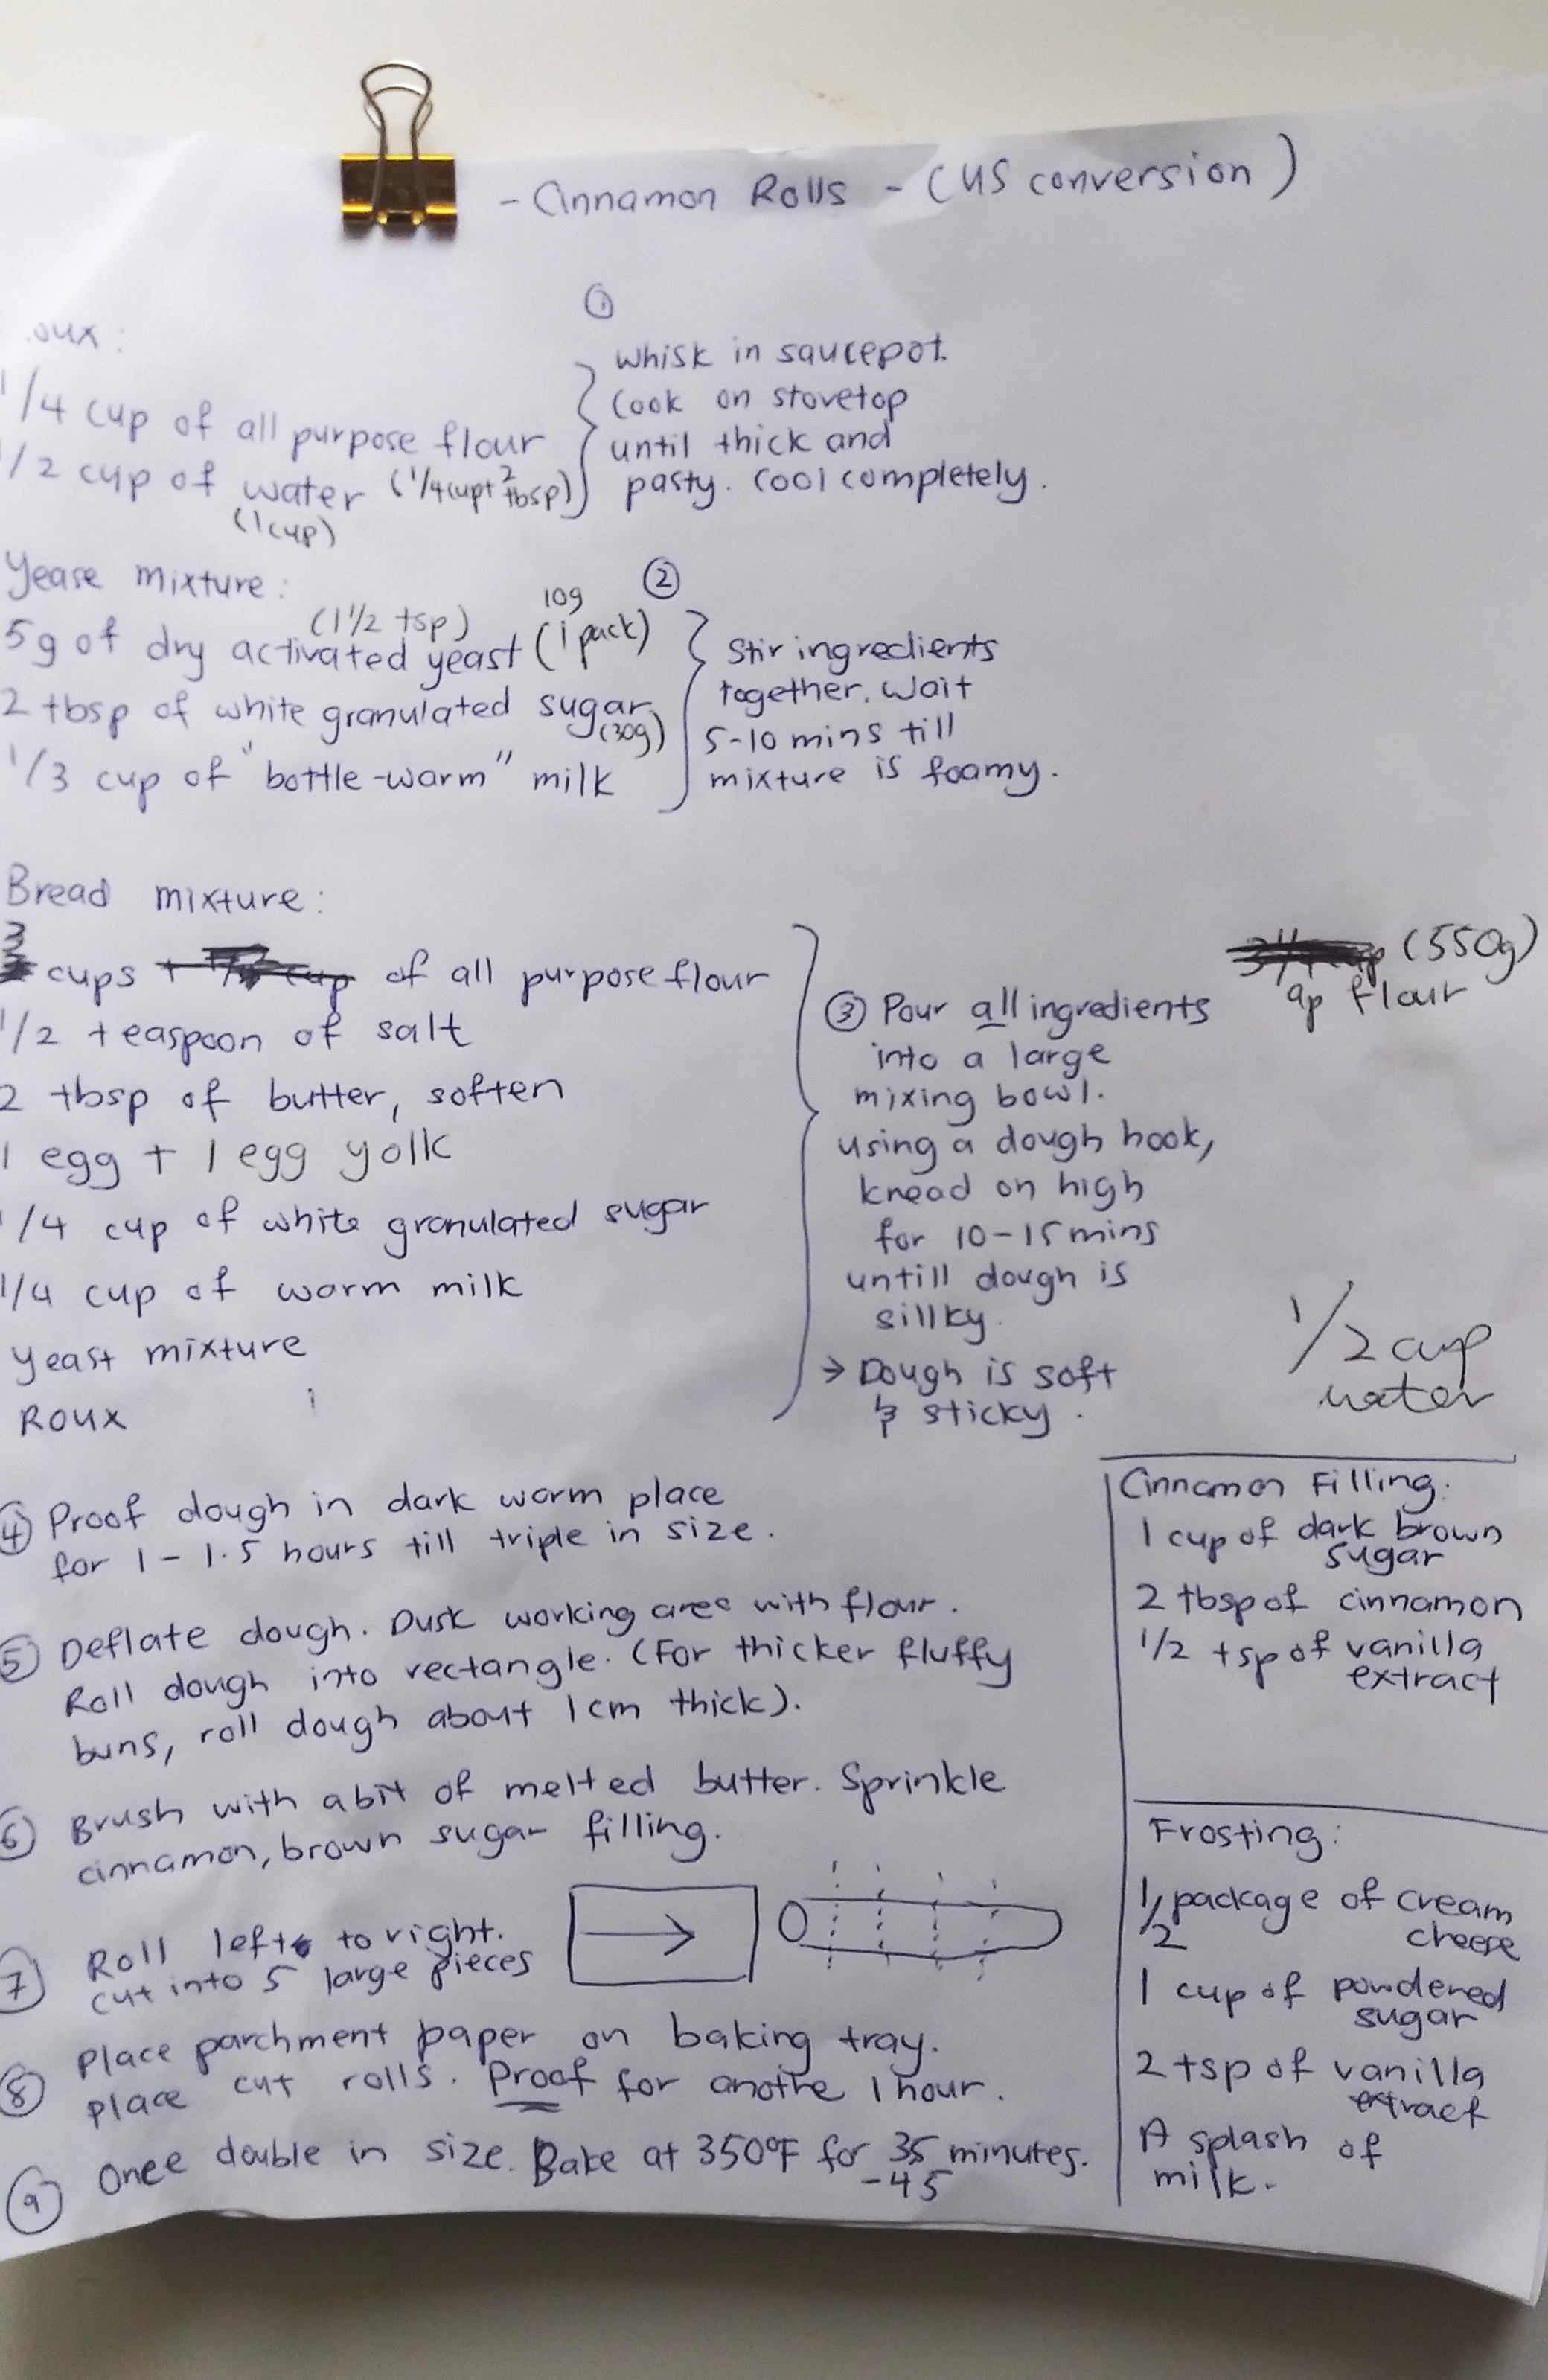 - Cinnamon Rolls - (US conversion)
oux:
1/4 cup of all purpose flour
1/2 cup of water (1/4cup+ 2 tbsp)
(1cup)
①
whisk in saucepot.
Cook on stovetop
until thick and
pasty. Cool completely.
Yease mixture:
(1 1/2 tsp) 10g
5g of dry activated yeast (1 pack)
2 tbsp of white granulated sugar
(30g)
1/3 cup of "bottle-warm" milk
②
Stir ingredients
together. Wait
5-10 mins till
mixture is foamy.
Bread mixture:
3 cups of all purpose flour
1/2 teaspoon of salt
2 tbsp of butter, soften
1 egg + 1 egg yolk
1/4 cup of white granulated sugar
1/4 cup of warm milk
yeast mixture
Roux
③ Pour all ingredients
into a large
mixing bowl.
using a dough hook,
knead on high
for 10-15 mins
untill dough is
sillky.
→ Dough is soft
& sticky.
(550g)
ap flour
1/2 cup
water
④ Proof dough in dark warm place
for 1 - 1.5 hours till triple in size.
⑤ Deflate dough. Dusk working area with flour.
Roll dough into rectangle. (For thicker fluffy
buns, roll dough about 1cm thick).
⑥ Brush with abit of melted butter. Sprinkle
cinnamon, brown sugar filling.
⑦ Roll left to right.
cut into 5 large pieces
⑧ Place parchment paper on baking tray.
place cut rolls. Proof for anothe 1 hour.
⑨ Once double in size. Bake at 350°F for 35 minutes.
-45
Cinnamon Filling:
1 cup of dark brown
sugar
2 tbsp of cinnamon
1/2 tsp of vanilla
extract
Frosting:
1/2 package of cream
cheese
1 cup of powdered
sugar
2 tsp of vanilla
extract
A splash of
milk.